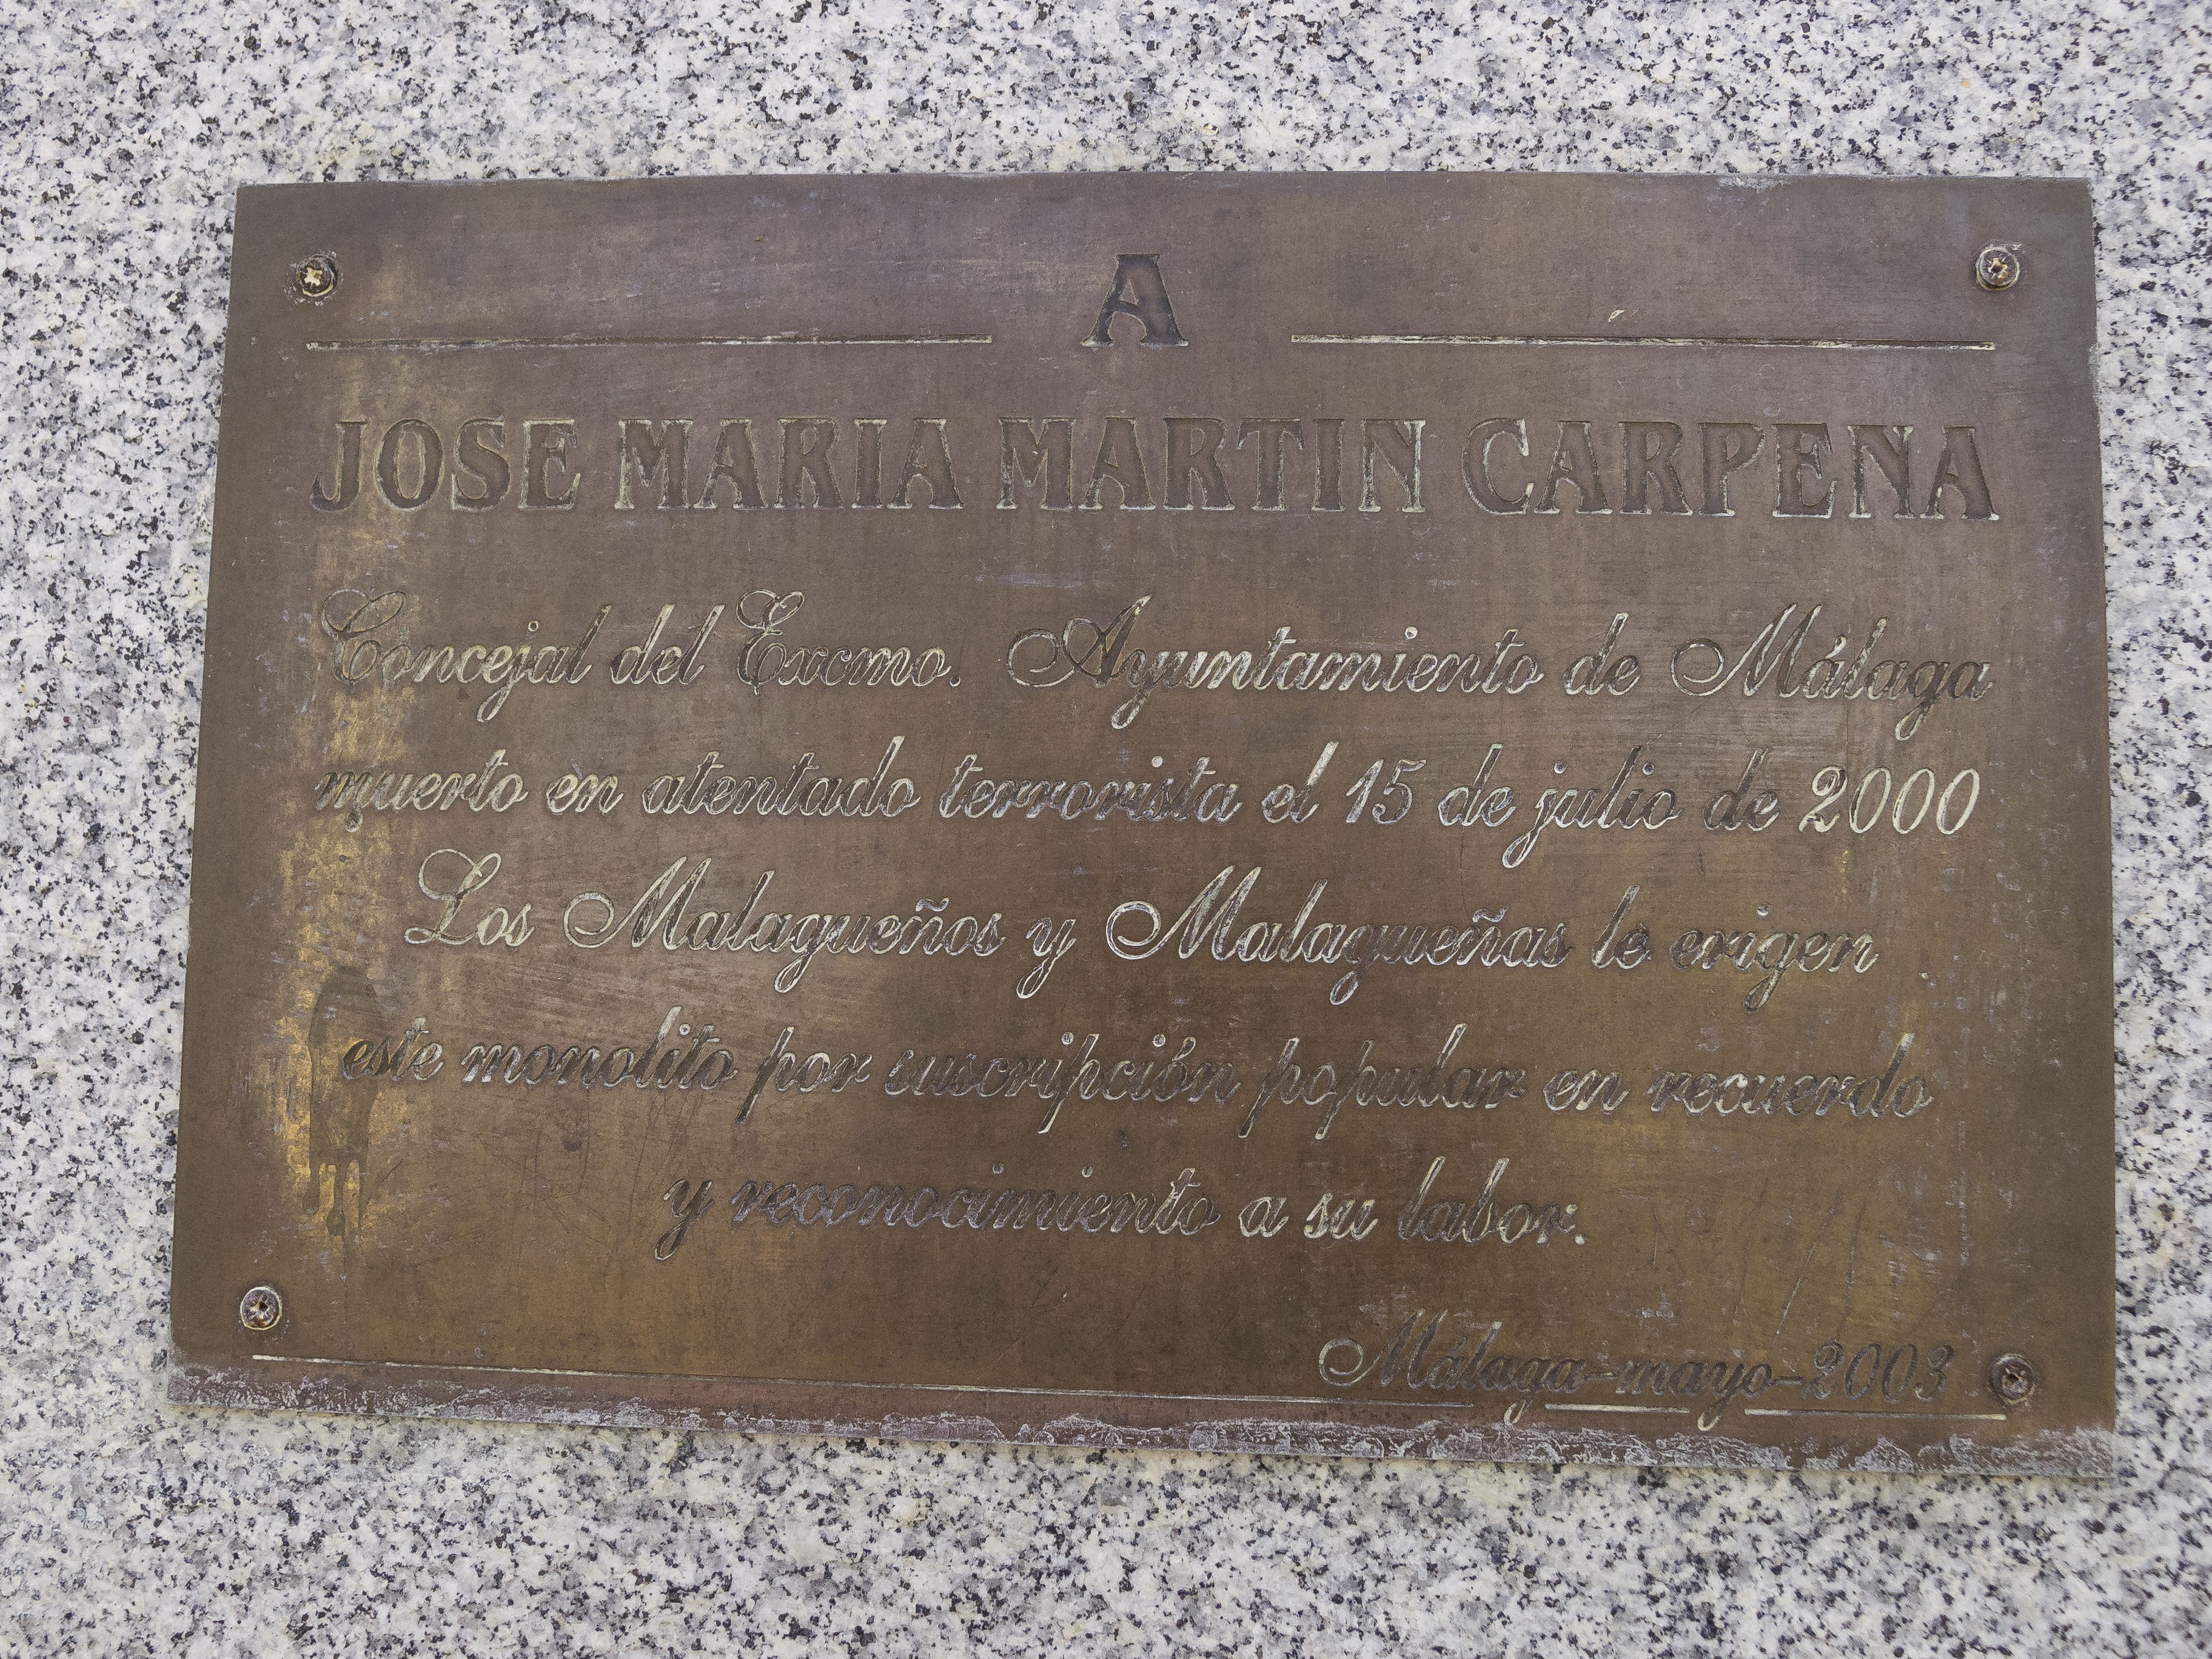 A
JOSE MARIA MARTIN CARPENA
Concejal del Excmo. Ayuntamiento de Málaga
muerto en atentado terrorista el 15 de julio de 2000
Los Malagueños y Malagueñas le erigen
este monolito por suscripción popular en recuerdo
y reconocimiento a su labor.
Málaga-mayo-2003